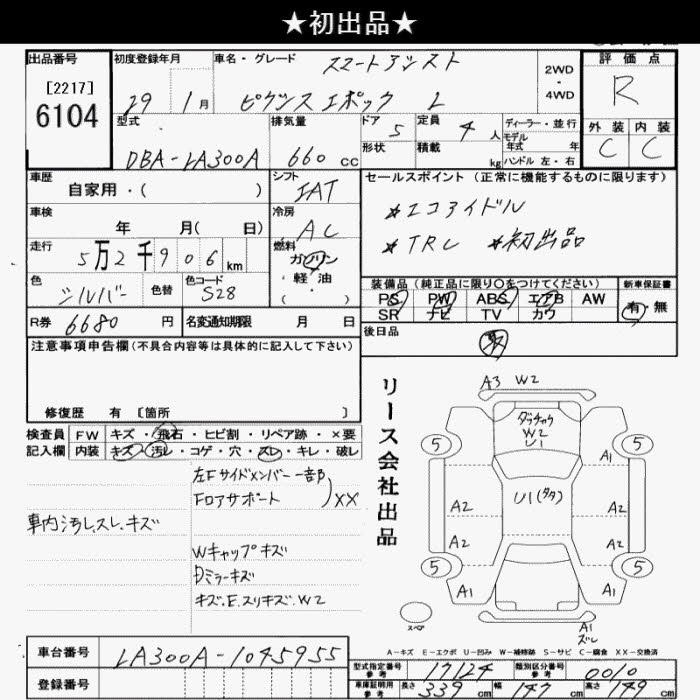 ★初出品★
出品番号
[2217]
6104
初度登録年月
29 1月
車名・グレード
スマートアシスト
ピクシスエポック L
2WD
・
4WD
評価点
R
型式
DBA-LA300A
排気量
660 cc
ドア
5
定員
4人
形状
積載
kg
ディーラー・並行
モデル
年式 年
ハンドル 左・右
外装 内装
C C
車歴
自家用・( )
シフト
IAT
セールスポイント (正常に機能するものに限ります)
*エコアイドル
*TRC *初出品
車検
年 月( 日)
冷房
AC
走行
5万2千906km
燃料
ガソリン
・軽油
( ・ )
色
シルバー
色替
色コード
S28
装備品 (純正品に限り○をつけてください)
PS PW ABS エアB AW
SR ナビ TV カワ
新車保証書
有・無
R券 6680円
名変通知期限 月 日
後日品
注意事項申告欄(不具合内容等は具体的に記入して下さい)
修復歴 有 [箇所 ]
検査員
記入欄
FW キズ・飛石・ヒビ割・リペア跡・×要
内装 キズ・汚レ・コゲ・穴・スレ・キレ・破レ
左Fサイドメンバー一部
Fロアサポート
)XX
車内汚レ、スレ、キズ
Wキャップキズ
Dミラーキズ
キズ.E.スリキズ.W2
リース会社出品
A3 W2
W2
U1
U1
5 5
A1
A2 A2
A2 A2
5 5
A1 A1
スペア
A1
ズレ
A-キズ E-エクボ U-凹み W-補修跡 S-サビ C-腐食 XX-交換済
車台番号 LA300A-1045955
登録番号
型式指定番号
参考
17124
類別区分番号
参考
0010
車庫証明用
参考
長さ 339 cm 幅 147 cm 高さ 149 cm